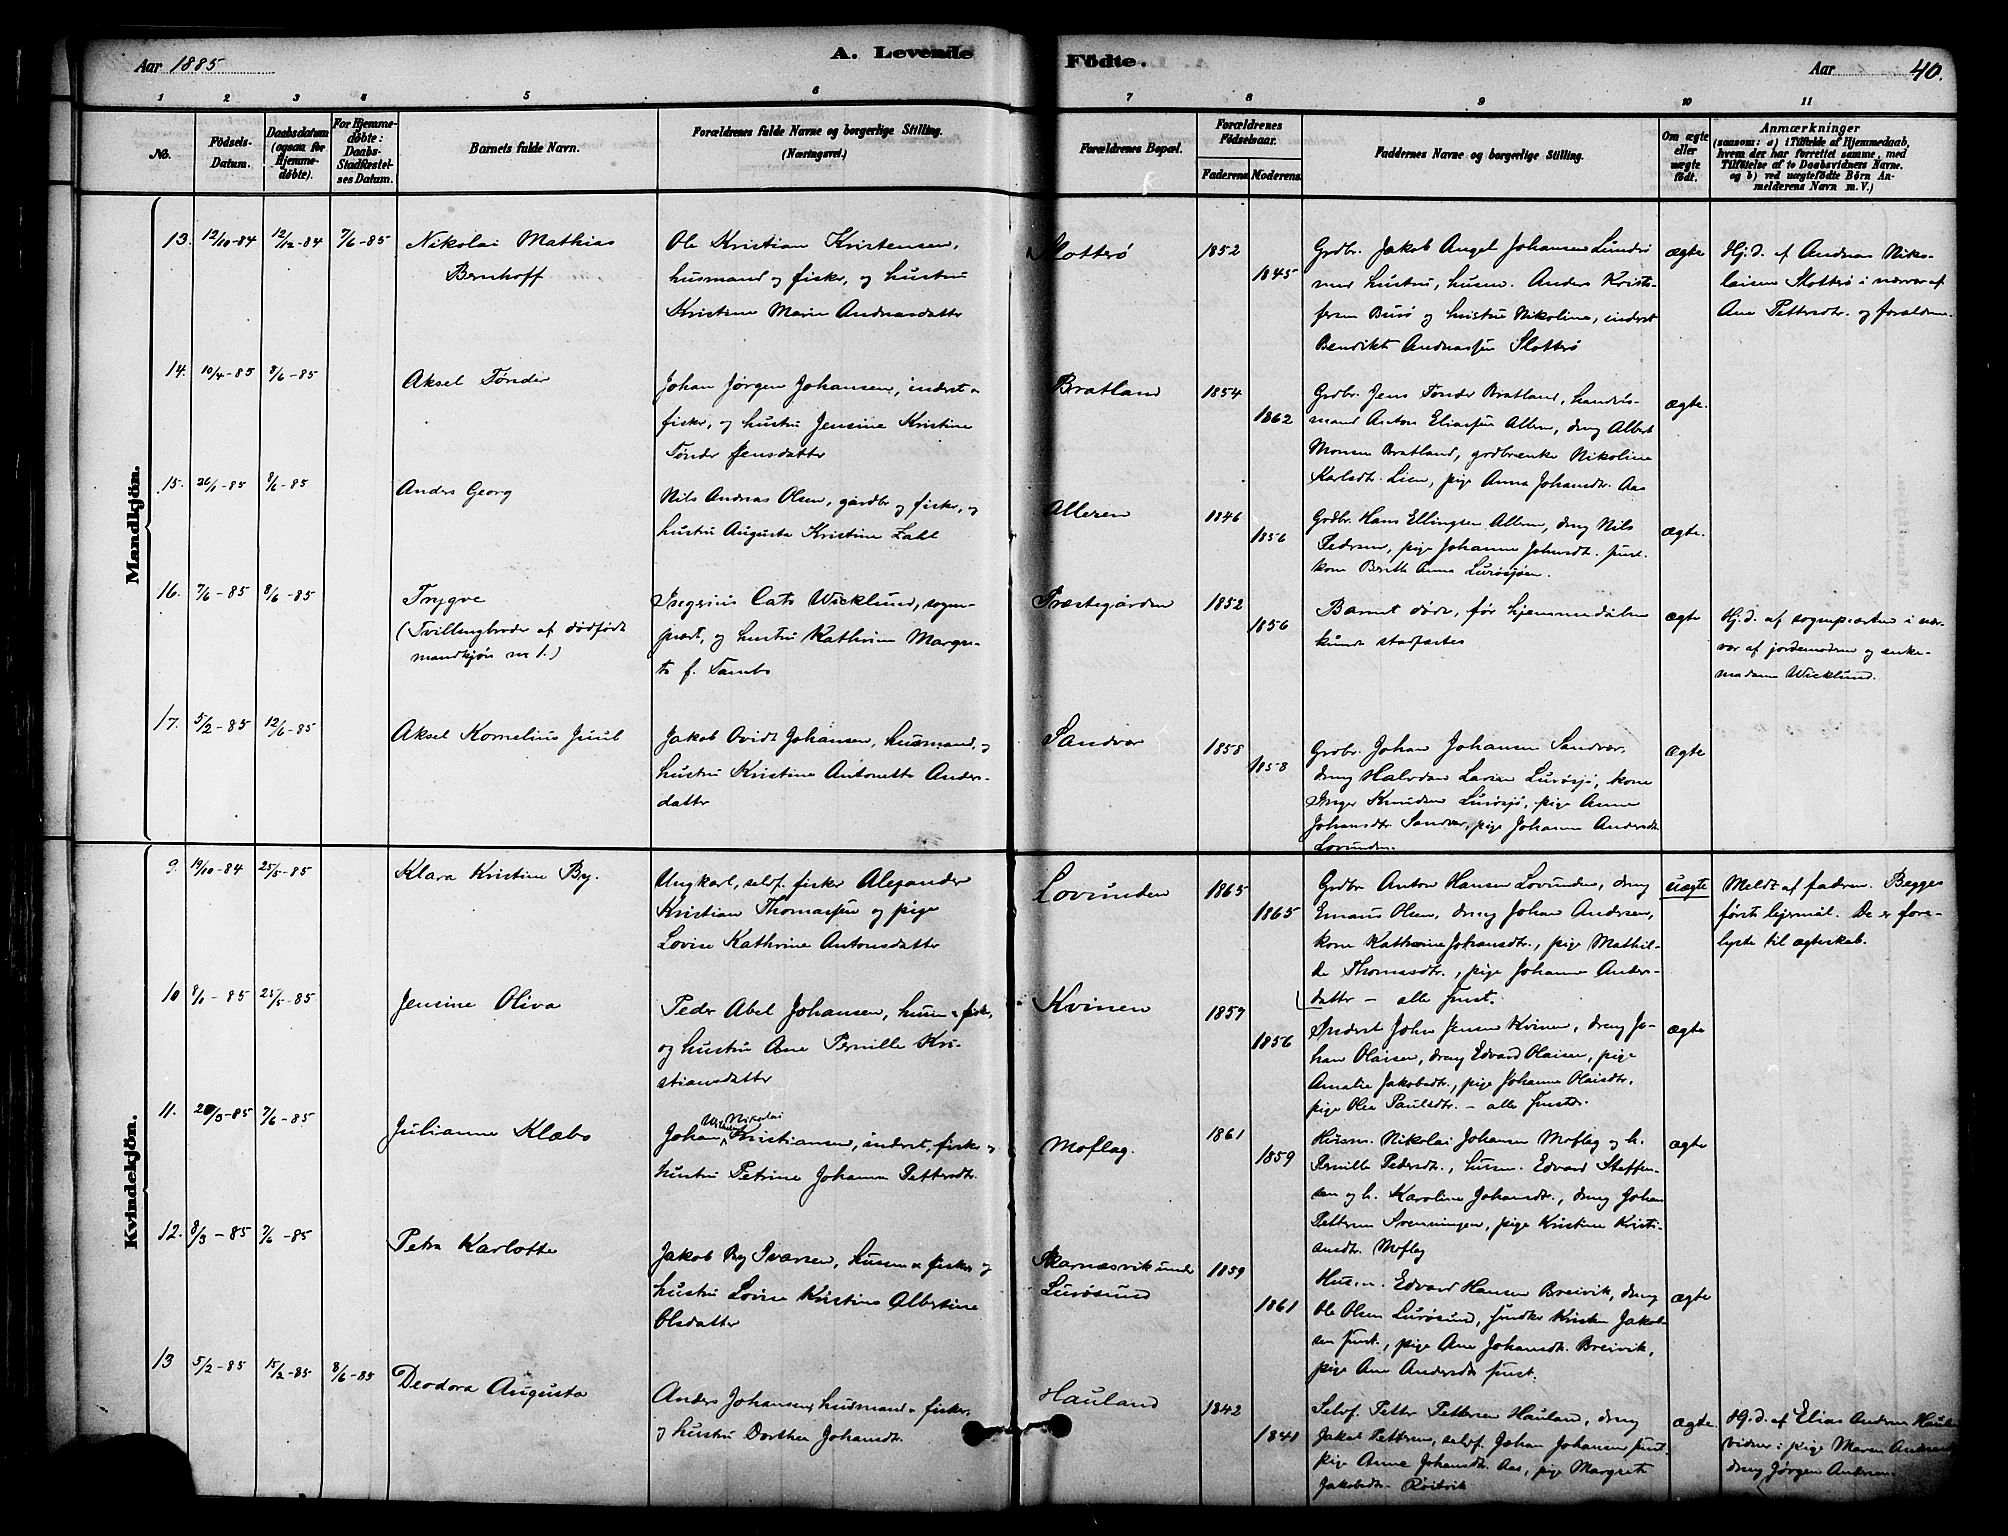 Aar 1885
A. Levende
Födte.
Aar
40.
1 2 3 4 5 6 7 8 9 10 11
No.
Födsels-
Datum.
Daabsdatum
(ogsaa for
Hjemme-
döbte).
For Hjemme-
døbte:
Daabs-
Stadfæstel-
ses Datum.
Barnets fulde Navn.
Forældrenes fulde Navne og borgerlige Stilling.
(Næringsvei.)
Forældrenes Bopæl.
Forældrenes
Födselsaar.
Faderens Moderens
Faddernes Navne og borgerlige Stilling.
Om ægte
eller
uægte
födt.
Anmærkninger
(saasom: a) i Tilfælde af Hjemmedaab,
hvem der har forrettet samme, med
Tilföielse af to Daabsvidners Navne.
og b) ved uægtefödte Börn An-
melderens Navn m. V.)
Mandkjön.
13. 12/10-84 12/12-84 7/6-85
Nikolai Mathias
Bernhoff
Ole Kristian Kristensen,
husmand og fisker, og hustru
Kristine Marie Andreasdatter
Slotterø
1852
1845
Grdbr. Jakob Angel Johansen Lundri
med hustru, husm. Anders Kristi-
fersen Burø og hustru Nikoline, inderst
Benrikt Andreassen Slotterø
ægte
Hj. d. af Andreas Niko-
laisen Slotterø i nærvær af
Ane Pettersdtr. og forældrene.
14. 10/4-85 8/6-85
Aksel Tønder
Johan Jørgen Johansen, inderst &
fisker, og hustru Jensine Kristine
Tønder Jensdatter
Bratland
1854
1862
Grdbr. Jens Tønder Bratland, handels-
mand Anton Eliassen Alleren, dreng Albert
Monsen Bratland, grdbrenke Nikoline
Karlsdt. Lien, pige Anna Johansdt. Aas
ægte.
15. 26/1-85 8/6-85
Anders Georg
Nils Andreas Olsen, gardbr og fisker, og
hustru Augusta Kristine Zahl
Alleren
1846
1856
Grdbr. Hans Ellingsen Alleren, dreng Nils
Pedersen, pige Johanna Johansdt. smst.
kone Berith Anna Lurøsjøen.
ægte.
16. 7/6-85 8/6-85
Trygve
(Tvillingbroder af dødfødt
mandkjøn nr 1.)
Cato Wicklund, sogne-
præst, og hustru Kathrine Margre-
te f. Tambs
Præstegården
1852
1856
Barnet døde, før hjemmedåben
kunde stadfæstes
ægte
Hj. d. af sognepræsten i nær-
vær af jordemoderen og enke-
madame Wicklund.
17. 5/2-85 12/6-85
Aksel Kornelius Juul
Jakob Ovidt Johansen, husmand, og
hustru Kristine Antonette Anders-
datter
Sandvær
1858
1858
Grdbr. Johan Johansen Sandvær,
dreng Halvdan Larsen Lurøsjø, kone
Inger Knudsen Lurøsjø, pige Anna
Johansdtr Sandvær, pige Johanna Andersdt.
Lovunden.
ægte
Kvindekjön.
9. 19/10-84 25/5-85
Klara Kristine By.
Ungkarl, selvf. fisker Alexander
Kristian Thomassen og pige
Lovise Kathrine Antonsdatter
Lovunden
1865
1865
Grdbr Anton Hansen Lovunden, dreng
Emaus Olsen, dreng Johan Andersen,
kone Kathrine Johansdtr., pige Mathil-
de Thomasdtr., pige Johanne Anders-
datter - alle smst.
uægte
Meldt af fadren. Begges
første lejermål. De er fore-
lyste til ægteskab.
10 8/1-85 25/5-85
Jensine Oliva
Peder Abel Johansen, husm & fisker,
og hustru Ane Pernille Kri-
stiansdatter
Kvinen
1859
1856
Inderst John Jensen Kvinen, dreng Jo-
han Olaisen, dreng Edvard Olaisen, pige
Amalie Jakobsdtr., pige Johanna Olaisdtr.
pige Olea Paulsdtr. - alle smsts.
ægte
11. 20/3-85 7/6-85
Julianne Klæbo
Nikolai
Johan Kristiansen, inderst, fisker og
hustru Petrine Johanna Pettersdtr.
Moflag.
1861
1859
Husm. Nikolai Johansen Moflag og h.
Pernille Pedersdtr., husm. Edvard Steffen-
sen og h. Karoline Johansdt., dreng Johan
Pettersen Svenningen, pige Kristine Kristi-
ansdt. Moflag
ægte
12. 8/3-85 7/6-85
Petra Karlotte
Jakob By Ivarsen, husm & fisker og
hustru Lovise Kristine Albertine
Olsdatter
Skarnæsvik under
Lurøsund
1859
1861
Husm. Edvard Hansen Breivik, dreng
Ole Olsen Lurøsund, Kristen Jakob-
sen smst., pige Ane Johansdt. Breivik,
pige Ane Andersdt smst.
ægte
13 5/2-85 15/2-85 8/6-85
Deodora Augusta
Anders Johansen, husmand & fisker,
og hustru Dorthea Johansdt.
Hauland
1842
1841
Selvf. Petter Pettersen Hauland, dreng
Jakob Pettersen, selvf. Johan Johansen smst
pige Anne Johansdt. Aas, pige Margrete
Jakobsdt.
ægte
Hj. d. af Elias Andersen Hauland
vidner: pige Maren Andersdt
dreng Jørgen Andersen.